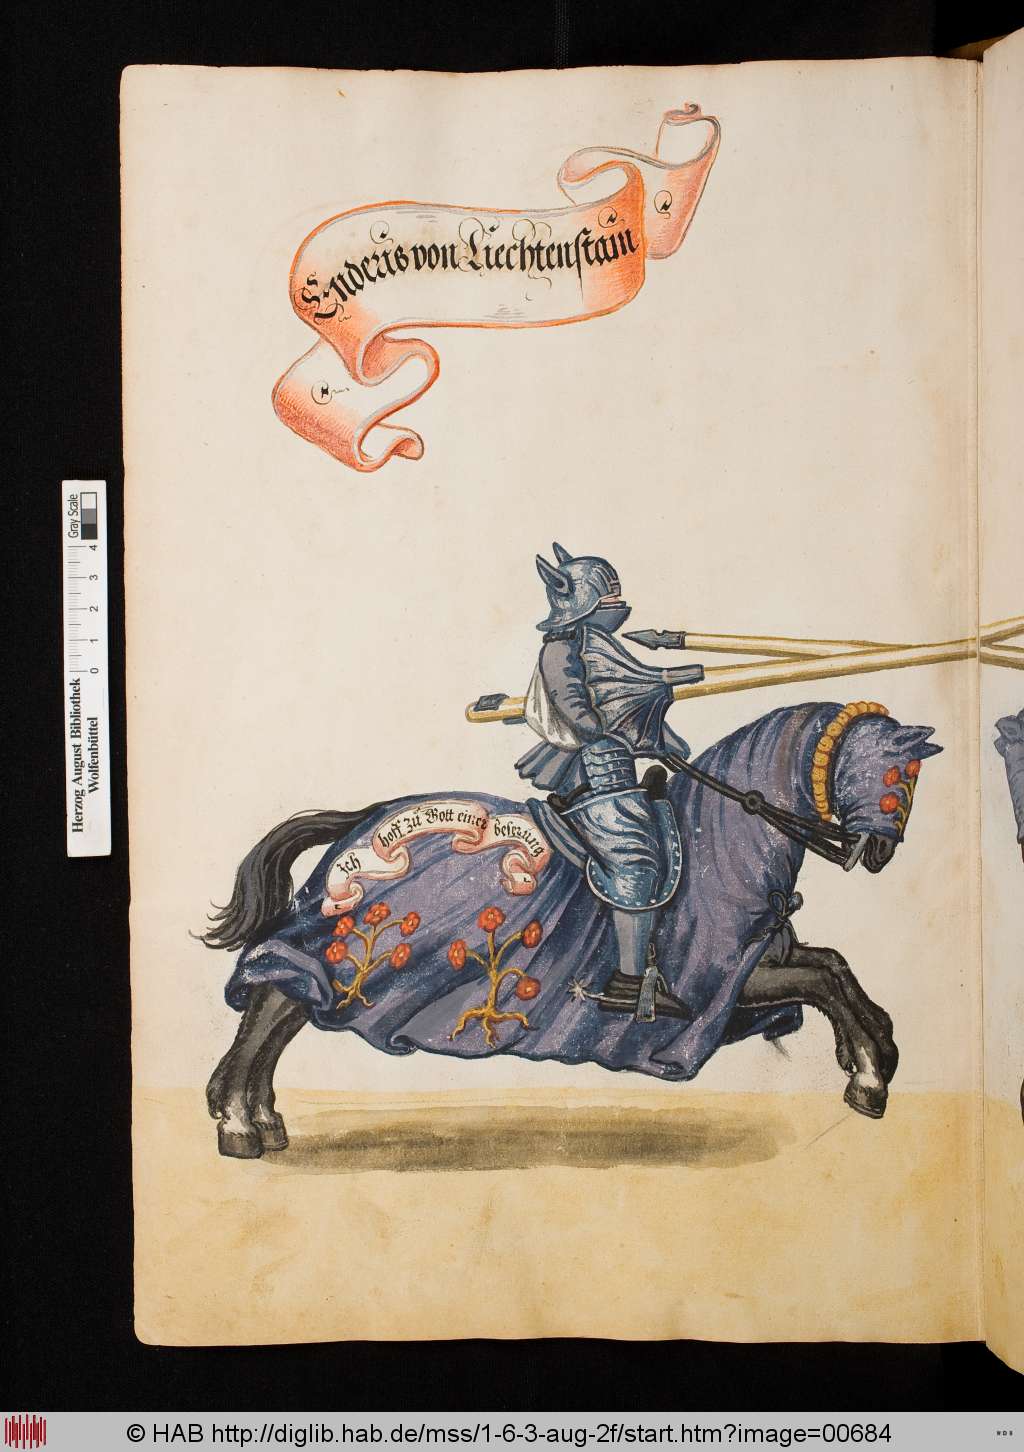 Enderis von Liechtenstain
Ich hoff zu Gott einer beserung
Herzog August Bibliothek
Wolfenbüttel
0 1 2 3 4
Gray Scale
© HAB http://diglib.hab.de/mss/1-6-3-aug-2f/start.htm?image=00684